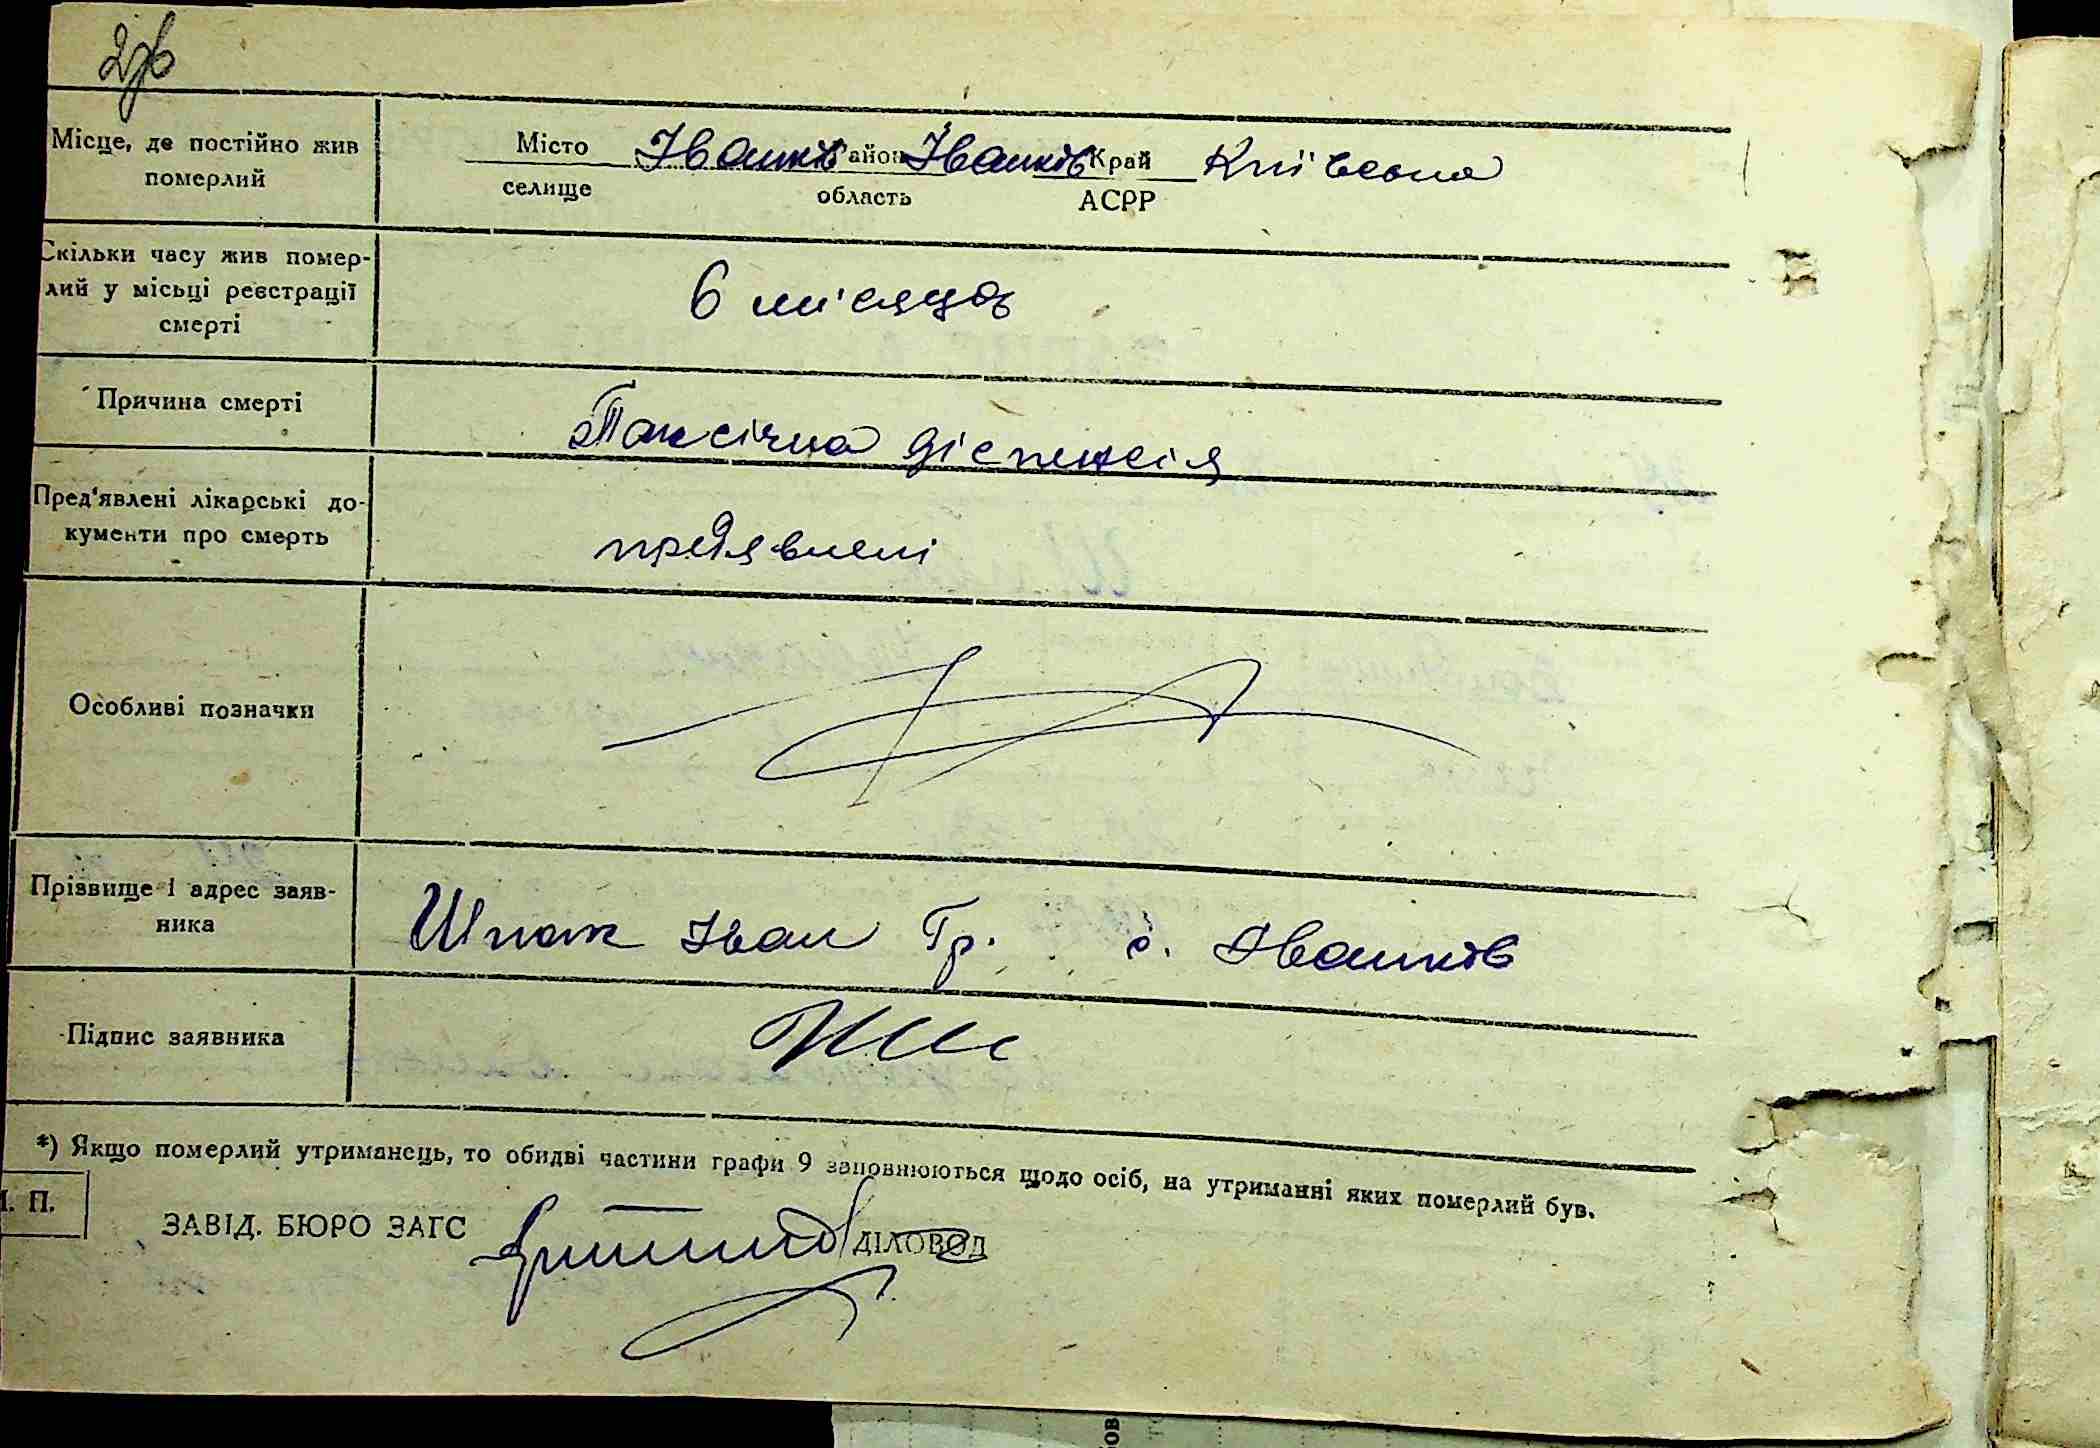 2зв
Місце, де постійно жив
померлий
Місто Іванків Район Іванків Край Київська
селище область АСРР
Скільки часу жив помер-
лий у місьці реєстрації
смерті
6 місяців
Причина смерті
Токсічна діспепсія
Пред'явлені лікарські до-
кументи про смерть
предявлені
Особливі позначки
Прізвище і адрес заяв-
ника
Шпак Іван Гр. с. Іванків
Підпис заявника
*) Якщо померлий утриманець, то обидві частини графи 9 заповнюються щодо осіб, на утриманні яких померлий був.
М. П.
ЗАВІД. БЮРО ЗАГС ДІЛОВОД